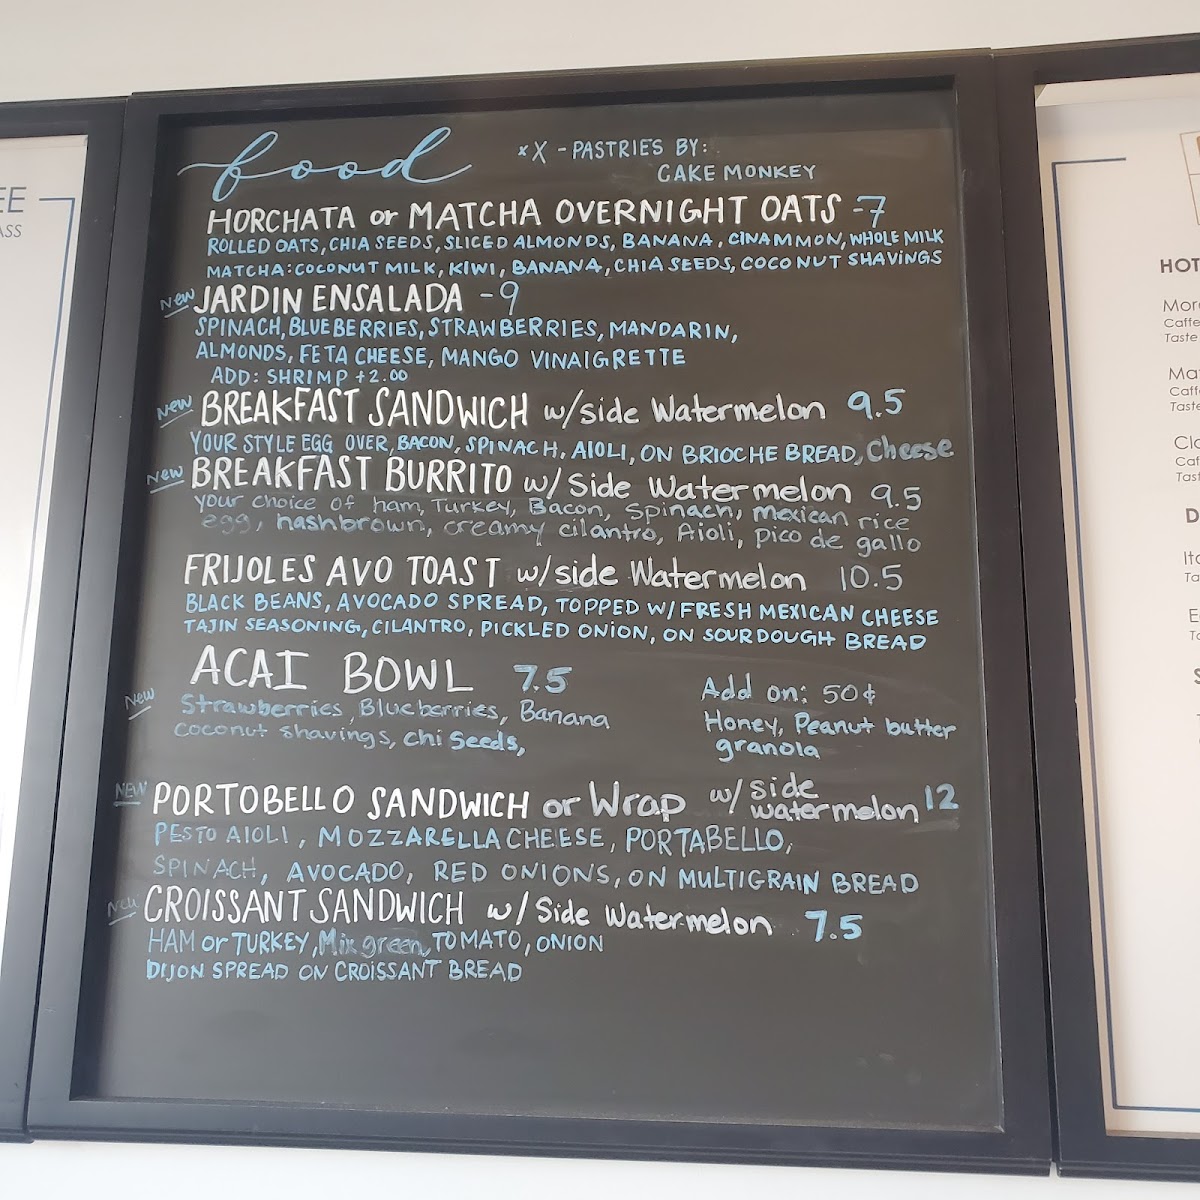 EE
ASS
food
*X - PASTRIES BY:
CAKE MONKEY
HORCHATA or MATCHA OVERNIGHT OATS -7
ROLLED OATS, CHIA SEEDS, SLICED ALMONDS, BANANA, CINAMMON, WHOLE MILK
MATCHA: COCONUT MILK, KIWI, BANANA, CHIA SEEDS, COCONUT SHAVINGS
New JARDIN ENSALADA -9
SPINACH, BLUEBERRIES, STRAWBERRIES, MANDARIN,
ALMONDS, FETA CHEESE, MANGO VINAIGRETTE
ADD: SHRIMP +2.00
New BREAKFAST SANDWICH w/side Watermelon 9.5
YOUR STYLE EGG OVER, BACON, SPINACH, AIOLI, ON BRIOCHE BREAD, Cheese
New BREAKFAST BURRITO w/ Side Watermelon 9.5
your choice of ham, Turkey, Bacon, spinach, mexican rice
egg, hashbrown, creamy cilantro, Aioli, pico de gallo
FRIJOLES AVO TOAST w/side Watermelon 10.5
BLACK BEANS, AVOCADO SPREAD, TOPPED W/FRESH MEXICAN CHEESE
TAJIN SEASONING, CILANTRO, PICKLED ONION, ON SOURDOUGH BREAD
New ACAI BOWL 7.5
Strawberries, Blueberries, Banana
coconut shavings, chi seeds,
Add on: 50¢
Honey, Peanut butter
granola
NEW PORTOBELLO SANDWICH or Wrap w/ side watermelon 12
PESTO AIOLI, MOZZARELLA CHEESE, PORTABELLO,
SPINACH, AVOCADO, RED ONIONS, ON MULTIGRAIN BREAD
New CROISSANT SANDWICH w/ Side Watermelon 7.5
HAM or TURKEY, Mix green, TOMATO, ONION
DIJON SPREAD ON CROISSANT BREAD
HOT
Caffe
Taste
Caff
Taste
Caf
Tas